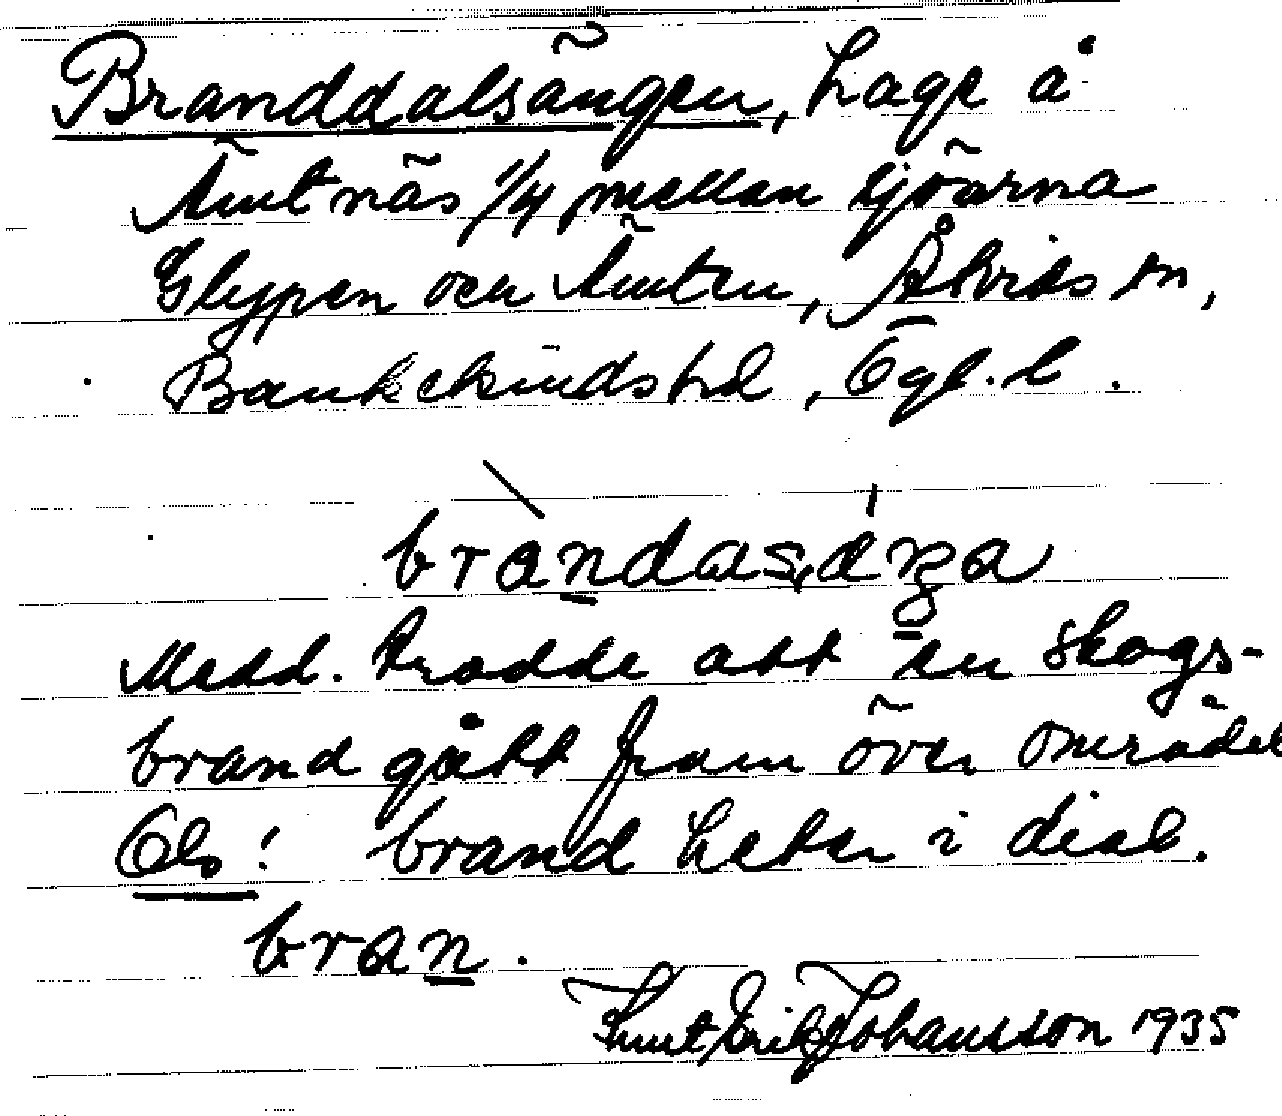 Branddalsängen, hage å
Ämtnäs 1/4 mellan sjöarna
Glypen och Ämten, Åtvids sn,
Bankekinds hd, Ögl. l.
brandasæŋa
Medd. trodde att en skogs-
brand gått fram över området
Obs! brand heter i dial.
bran.
Knut Erik Johansson 1935